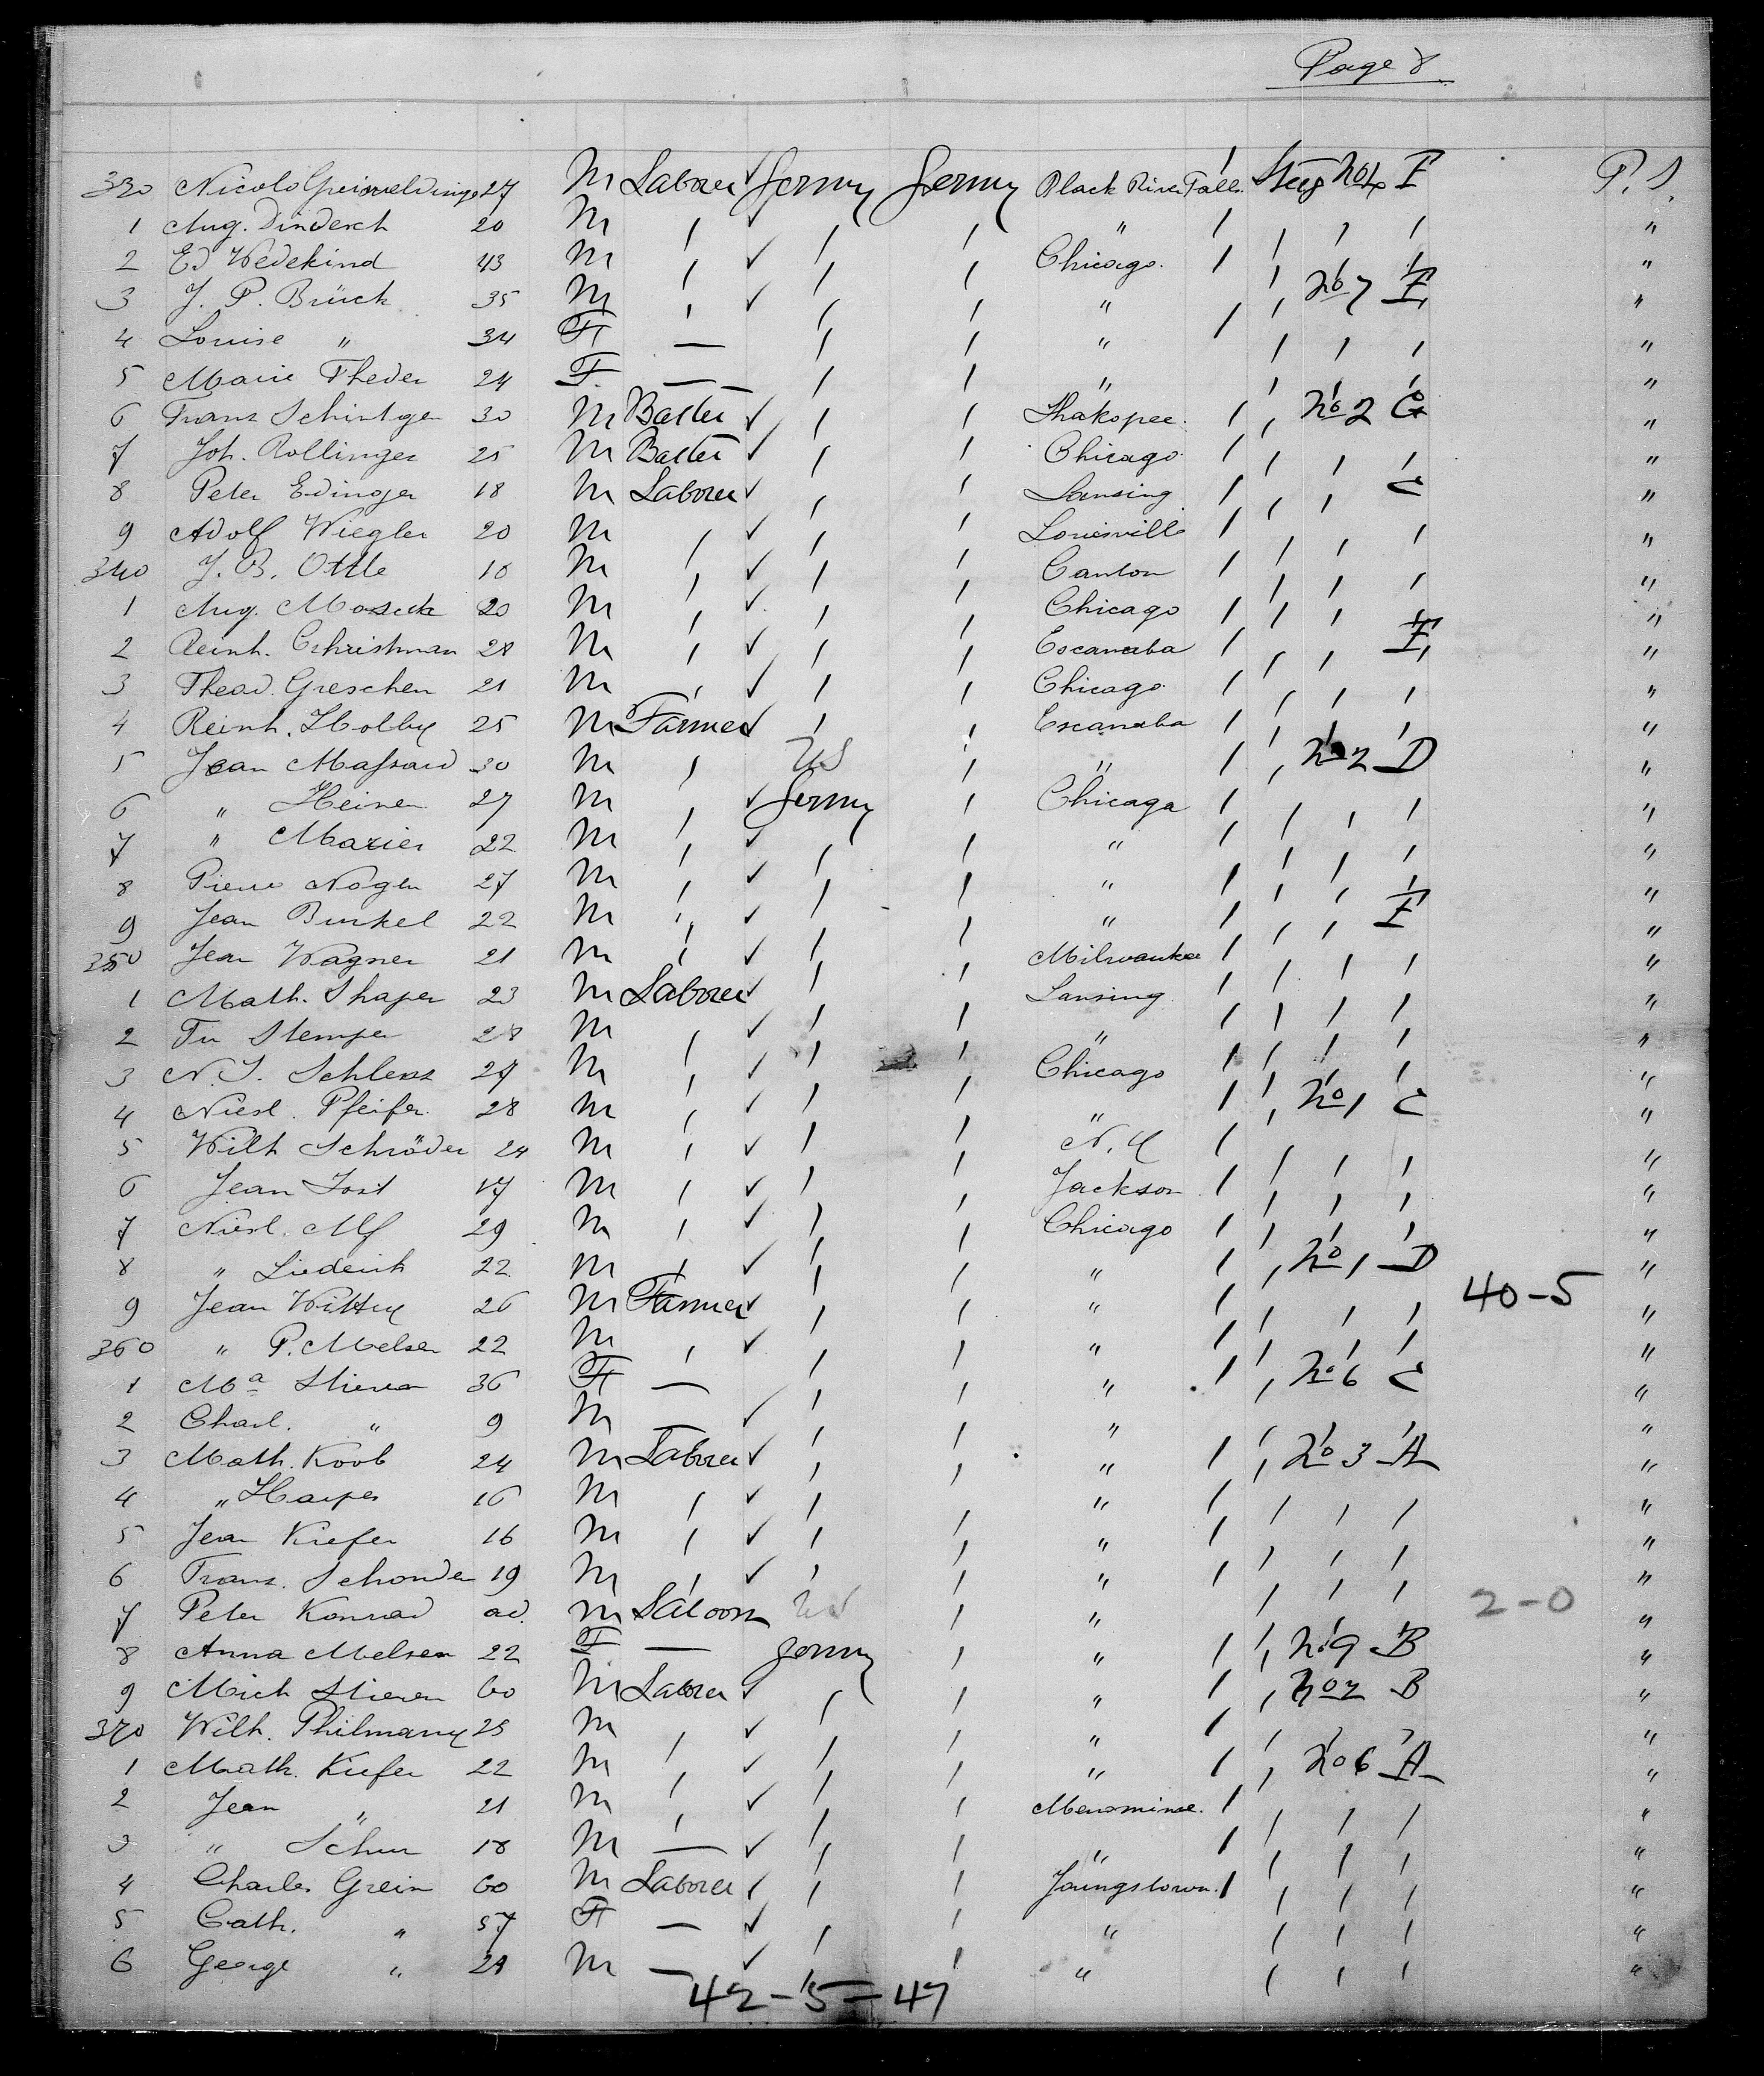 Page 8
330 Nicolo 27 M Laborer ✓ Germy Germy Black River Falls 1 Steg No 4 F P. S.
1 Aug. Dinderch 20 M / ✓ / / " 1 / / / "
2 Ed Wedekind 43 M / ✓ / / Chicago. 1 / / / "
3 J. P. Brück 35 M / ✓ / / " 1 / No 7 F "
4 Louise " 34 F — / / " / / / "
5 Marie Theder 24 F. — / / " / / / "
6 Franz Schintgen 30 M ✓ / / Shakopee. 1 / No 2 G "
7 Joh. Rollinger 25 M ✓ / / Chicago. 1 / / / "
8 Peter Edinger 18 M Laborer ✓ / / Lansing 1 / / C "
9 Adolf Wiegler 20 M / ✓ / / Louisville 1 / / / "
340 J. B. Ottle 18 M / ✓ / / Canton 1 / / / "
1 Aug. 20 M / ✓ / / Chicago 1 / / / "
2 Reinh. Cehristman 28 M / ✓ / / Escanaba 1 / / F "
3 Theod. Greschen 21 M / ✓ / / Chicago 1 / / / "
4 Reinh. Holbey 25 M Farmer ✓ / / Escanaba 1 / / / "
5 Jean Massard 30 M / US / " 1 / No 2 D "
6 " Heinen 27 M / ✓ Germy / Chicago 1 / / / "
7 " Marier 22 M / ✓ / / " 1 / / / "
8 Pierre Nogen 27 M / ✓ / / " 1 / / / "
9 Jean Burkel 22 M / ✓ / / " 1 / / F "
350 Jean Wagner 21 M / ✓ / / Milwaukee 1 / / / "
1 Math. Shaper 23 M Laborer ✓ / / Lansing 1 / / / "
2 Stemper 28 M / ✓ / / " 1 / / / "
3 N. S. 29 M / ✓ / / Chicago 1 / / / "
4 Pfeifer 28 M / ✓ / / " 1 / No 1 C "
5 Wilh Schröder 24 M / ✓ / / N. Y 1 / / / "
6 Jean Jost 17 M / ✓ / / Jackson 1 / / / "
7 29 M / ✓ / / Chicago 1 / / / "
8 " Liederich 22 M / ✓ / / " 1 / No 1 D "
9 Jean Wittry 26 M Farmer ✓ / / " 1 / / / 40-5 "
360 " P. Melsen 22 M / ✓ / / " 1 / / / "
1 Ma 36 F — / / " 1 / No 6 C "
2 Charl. " 9 M — ✓ / / " "
3 Math. Koob 24 M Laborer ✓ / / " 1 / No 3 A "
4 " Harpes 16 M / ✓ / / " 1 / / / "
5 Jean Kiefer 16 M / ✓ / / " 1 / / / "
6 Franz. Schonder 19 M / ✓ / / " 1 / / / "
7 Peter Konrad ad. M Saloon US / " / / / 2-0 "
8 Anna Melsen 22 F — Germy / " 1 / No 9 B "
9 Mich Stieren 60 M Laborer ✓ / / " 1 / No 2 B "
370 Wilh. Philmany 25 M / ✓ / / " 1 / / / "
1 Math. Kiefer 22 M / ✓ / / " 1 / No 6 A "
2 Jean " 21 M / ✓ / / Menominee. 1 / / / "
3 " 18 M — ✓ / / " 1 / / / "
4 Charles Grein 60 M Laborer / / / Joungstown. 1 / / / "
5 Cath. " 57 F — ✓ / / " / / / "
6 George " 29 M — ✓ / / " / / / "
42-5=47